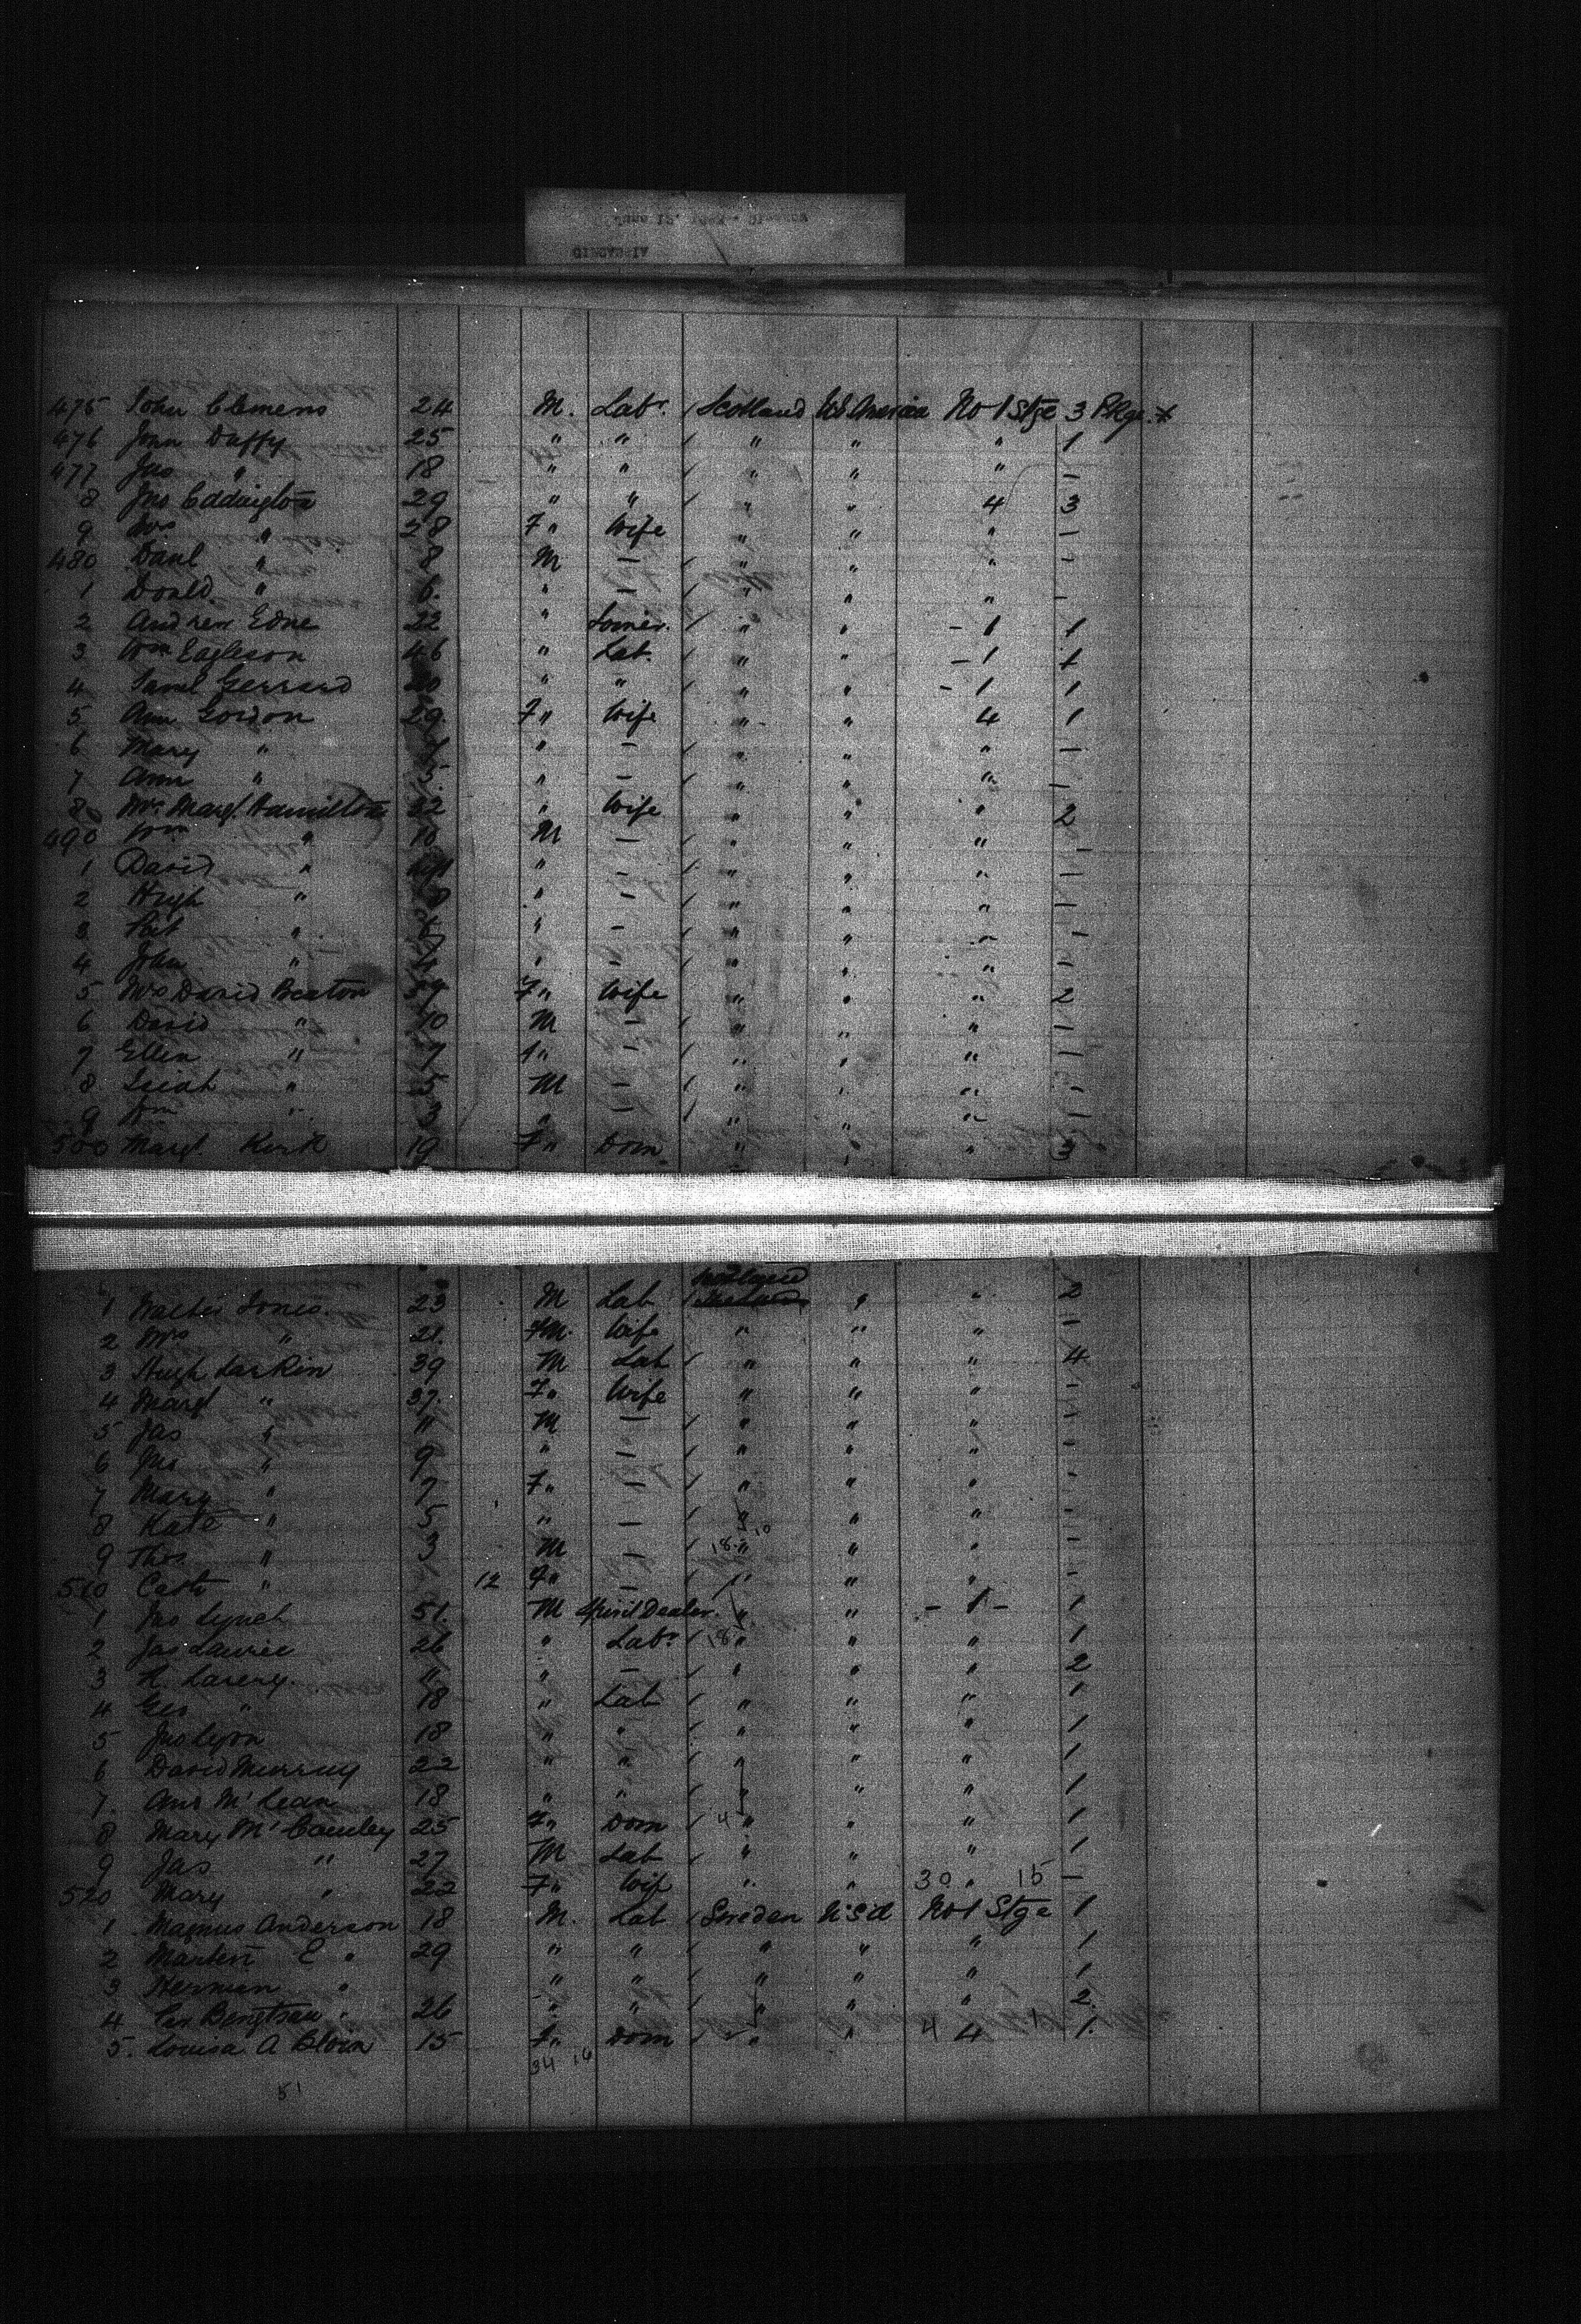 CIRCASSIA
475 John Clemens 24 M. Labr Scotland US America No 1 Stge 3 Pkgs
476 John Duffy 25 " " " " " 1
477 Jno " 18 " " " " " –
8 Jno Eddington 29 " " " " 4 3
9 Mrs " 28 F " Wife " " " –
480 Danl " 8 M – " " " –
1 Donld " 6 " – " " " –
2 Andrew Edne 22 " " " – 1 1
3 Wm Eagleson 46 " Lab. " " – 1 1
4 Saml Gerrard 20 " " " " – 1 1
5 Ann Gordon 29 F " Wife " " 4 1
6 Mary " " – " " " –
7 Ann " 5 " – " " " –
8 Mrs Margt. Hamilton 32 " Wife " " " 2
490 Wm " 10 M – " " " –
1 David " " – " " " –
2 Hugh " 8 " – " " " –
3 " " – " " " –
4 John " " – " " " –
5 Mrs David Beaton 39 F " Wife " " " 2
6 David " 10 M – " " " –
7 Ellen " 7 F " – " " " –
8 " 5 M – " " " –
9 Wm " 3 " – " " " –
500 Margt. Kirk 19 F " Dom " " " 3
Scotland
1 Walter Jones 23 M Lab " " 2
2 Mrs " 21. F M. Wife " " " –
3 Hugh Larkin 39 M Lab " " " 4
4 Margt " 37. F " Wife " " " –
5 Jas " 11 M – " " " –
6 Jno " 9 " – " " " –
7 Mary " 7 F " – " " " –
8 Kate " 5 " – " " " –
9 Thos " 3 M – 18 " 10 " " –
510 Cath " 12 F " – " " " –
1 Jno Lynch 51. M Spirit Dealer. " " – 1 – 1
2 Jas Lawrie 26 " Labr 18 " " " 1
3 " – " " " 2
4 Geo " 18 " Lab " " " 1
5 Jno Lyon 18 " " " " " 1
6 David Murray 22 " " " " " 1
7. And McLean 18 " " " " " 1
8 Mary McCauley 25 F " Dom 4 " " " 1
9 Jas " 27 M Lab " " " 1
520 Mary " 22 F " Wife " " 30 " 15 –
1 Magnus Anderson 18 M. Lab Sweden USA No 1 Stge 1
2 Marten E " 29 " " " " " 1
3 Herman " " " " " " 1
4 Bengtson " 26 " " " " " 2.
5. Louisa A Blom 15 F " Dom " " 4 4 1.
34 16
51